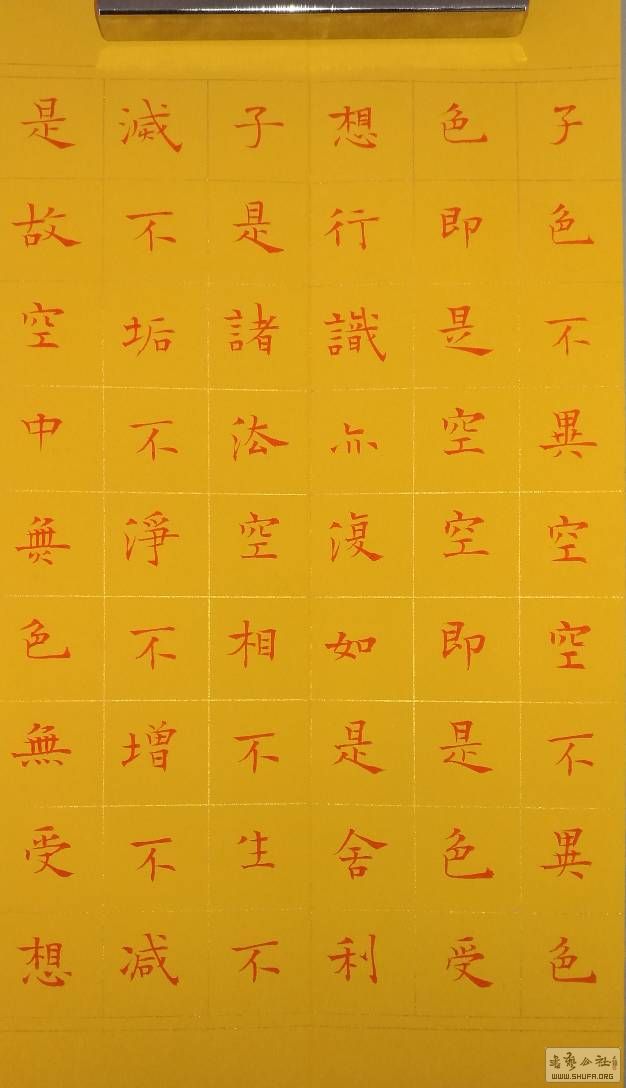 子色不異空空不異色
色即是空空即是色受
想行識亦復如是舍利
子是諸法空相不生不
滅不垢不淨不增不減
是故空中無色無受想
WWW.SHUFA.ORG